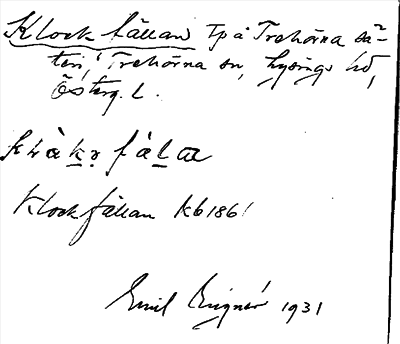 Klockfällan Tp å Trehörna sä-
teri, Trehörna sn, Lysings hd,
Österg. l.
Klockfällan kb 1861
Emil 1931